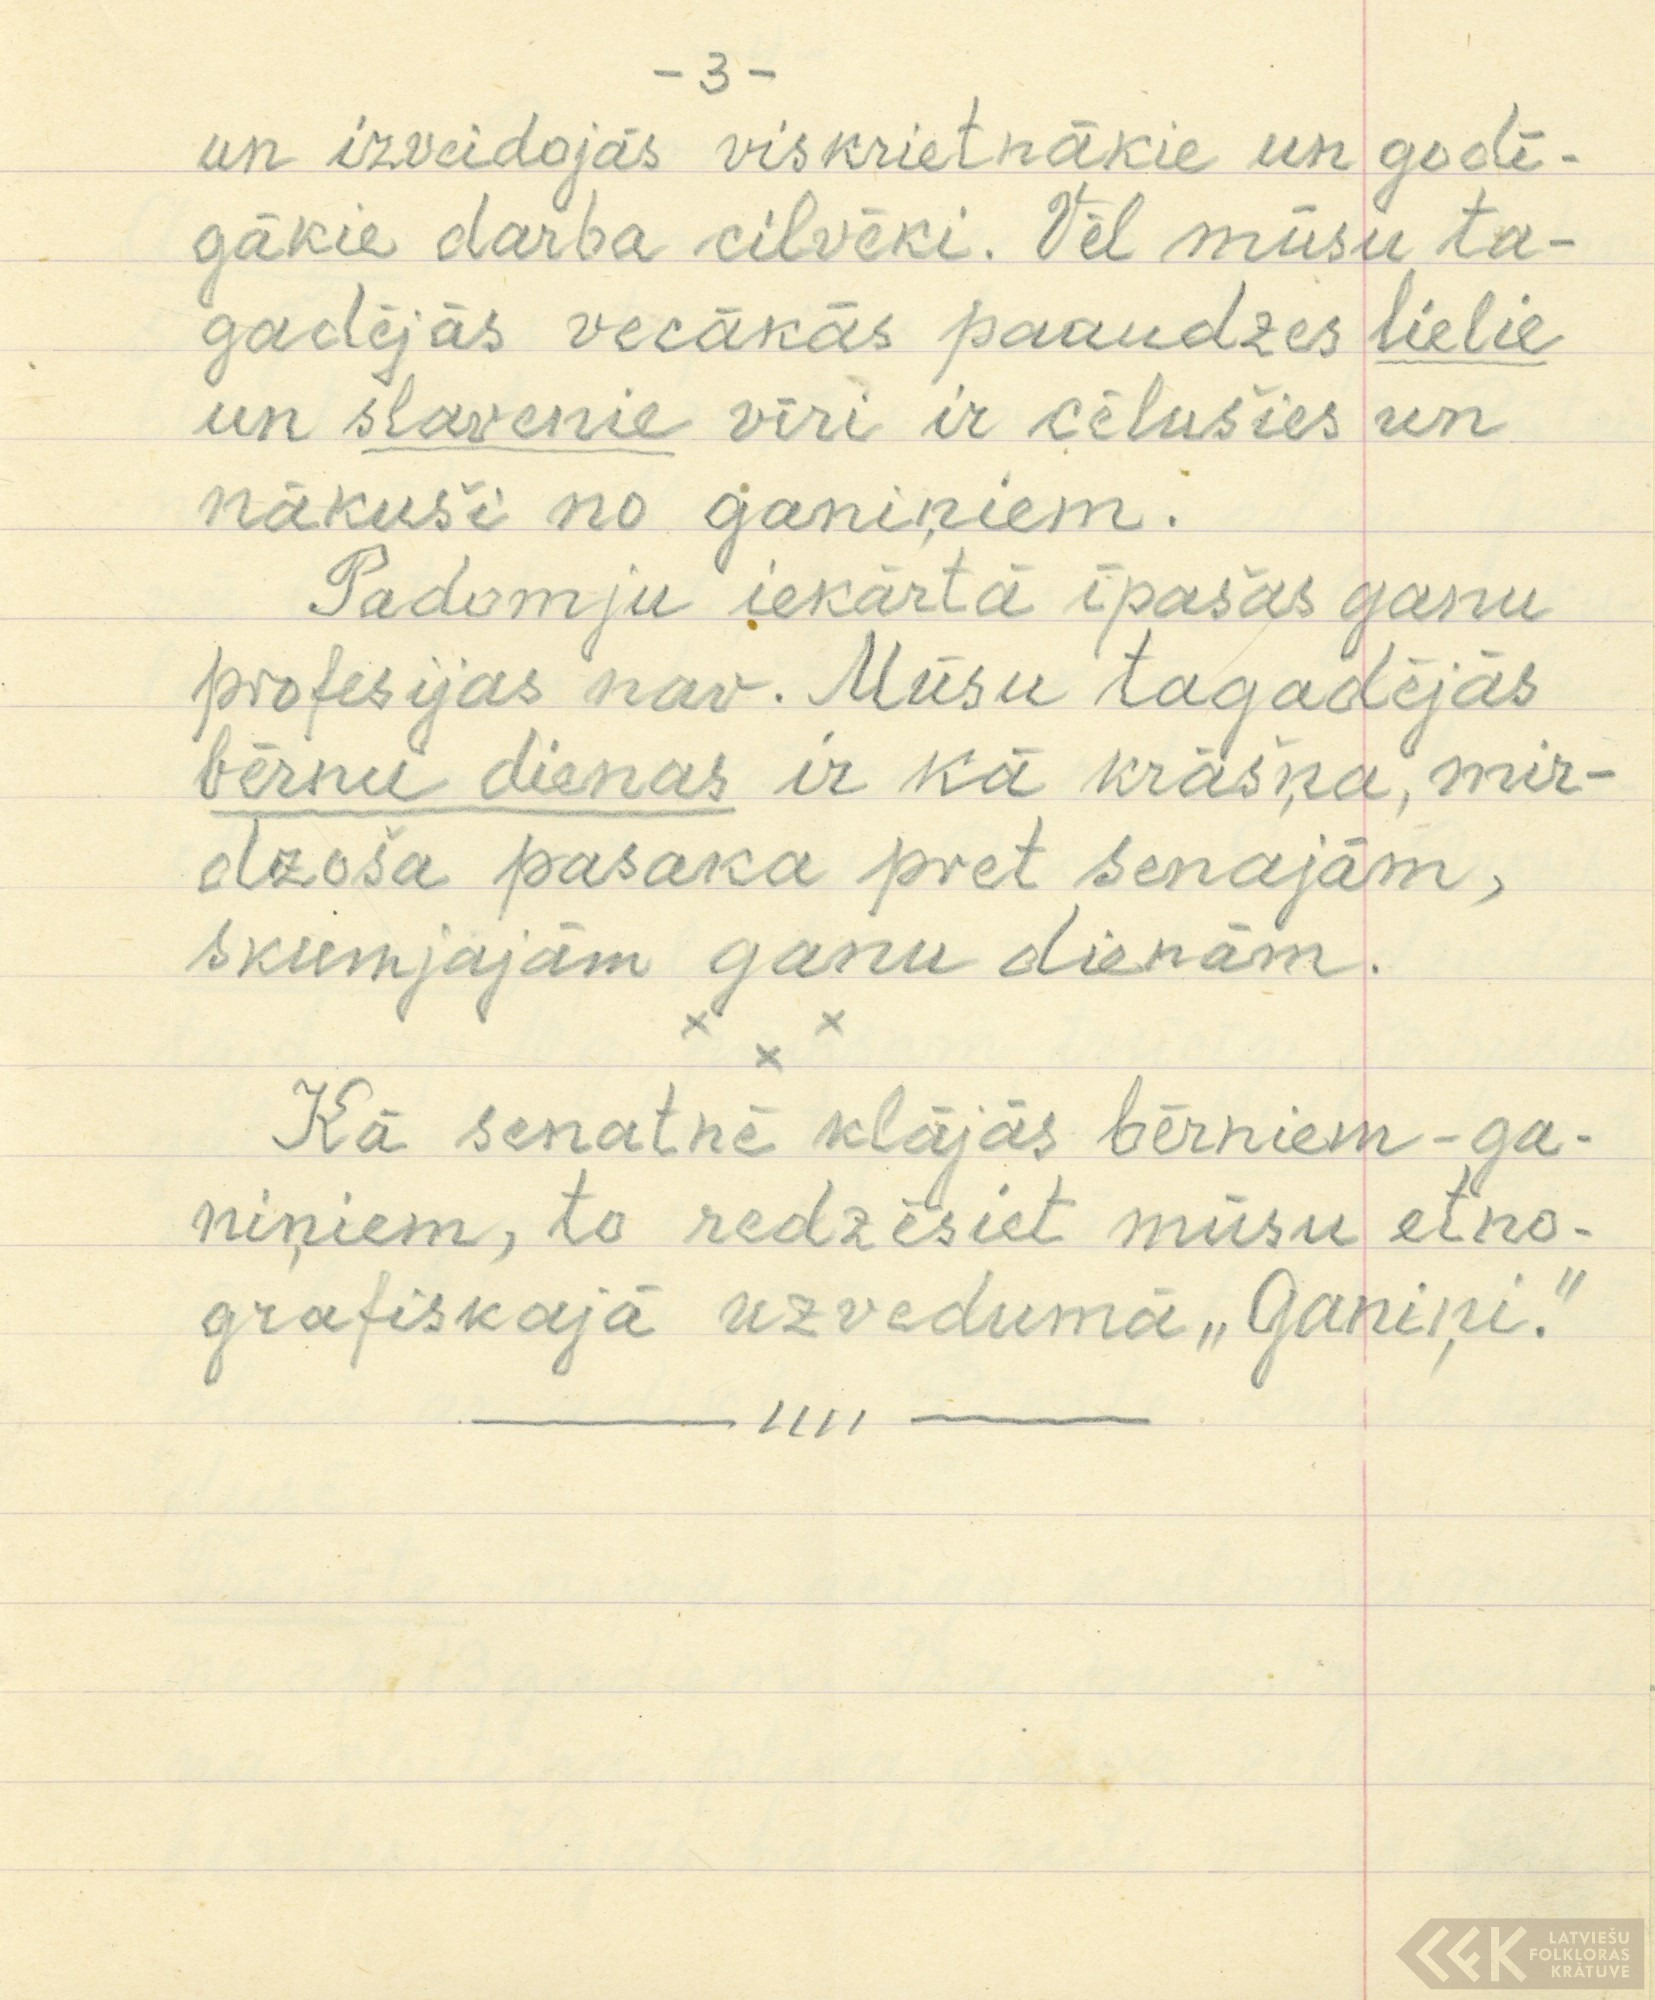 - 3 -
un izveidojās viskrietnākie un godī-
gākie darba cilvēki. Vēl mūsu ta-
gadējās vecākās paaudzes lielie
un slavenie vīri ir cēlušies un
nākuši no ganiņiem.
Padomju iekārtā īpašas ganu
profesijas nav. Mūsu tagadējās
bērnu dienas ir kā krāšņa, mir-
dzoša pasaka pret senajām,
skumjajām ganu dienām.
x x
x
Kā senatnē klājās bērniem - ga-
niņiem, to redzēsiet mūsu etno-
grafiskajā uzvedumā „Ganiņi."
LATVIEŠU
FOLKLORAS
KRĀTUVE